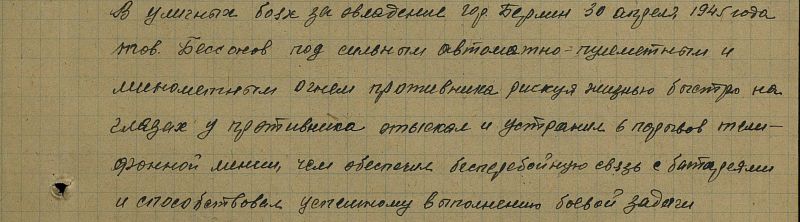 В уличных боях за овладение гор. Берлин 30 апреля 1945 года
тов. Бессонов под сильным автоматно-пулеметным и
минометным огнем противника рискуя жизнью быстро на
глазах у противника отыскал и устранил 6 порывов теле-
фонной линии, чем обеспечил бесперебойную связь с батареями
и способствовал успешному выполнению боевой задачи